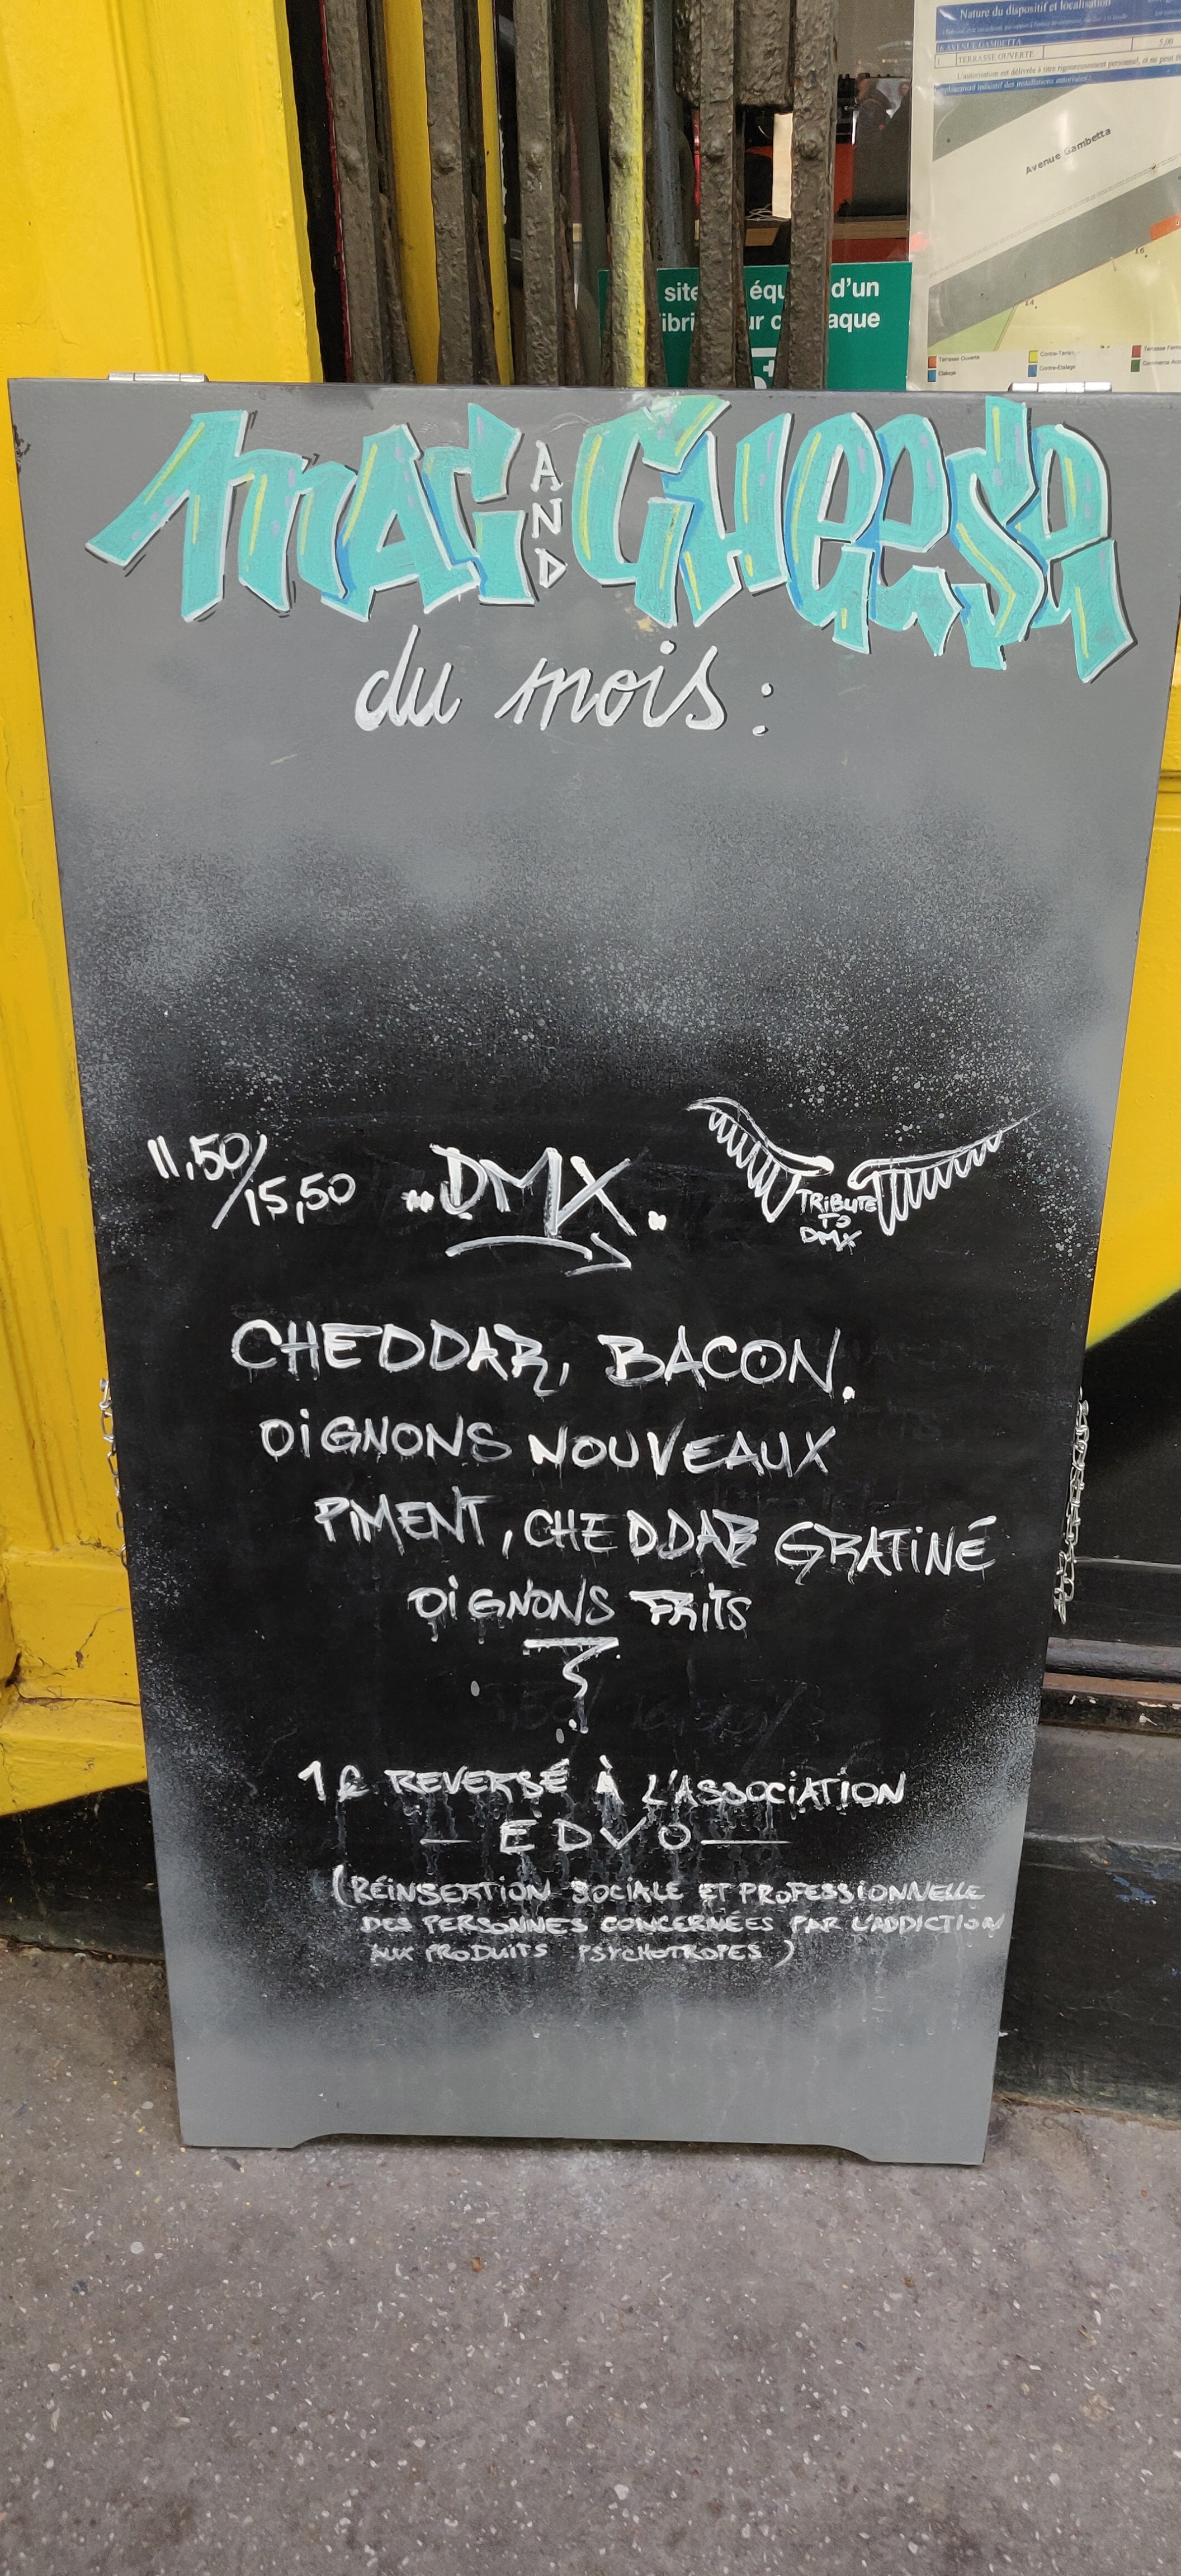 Nature du dispositif et localisation
16 AVENUE GAMBETTA
1 TERRASSE OUVERTE 5,00
L'autorisation est délivrée à titre rigoureusement personnel,
Avenue Gambetta
16
14
Terrasse Ouverte
Etalage
Contre-Etalage
site équ d'un
ibri ur c aque
MAC AND CHEESE
du mois :
11,50/15,50 "DMX"
TRIBUTE
TO
DMX
CHEDDAR, BACON.
OIGNONS NOUVEAUX
PIMENT, CHEDDAR GRATINÉ
OIGNONS FRITS
1€ REVERSÉ À L'ASSOCIATION
— EDVO —
(RÉINSERTION SOCIALE ET PROFESSIONNELLE
DES PERSONNES CONCERNÉES PAR L'ADDICTION
AUX PRODUITS PSYCHOTROPES)